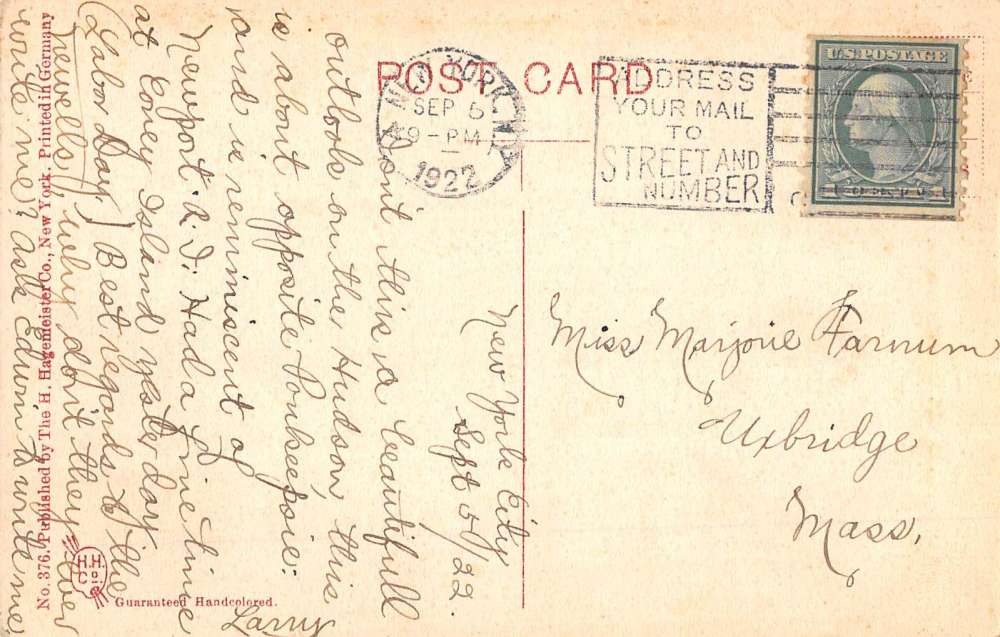 POST CARD
NEW YORK, N.Y.
SEP 5
9-PM
1922
ADDRESS
YOUR MAIL
TO
STREET AND
NUMBER
U.S. POSTAGE
1 CENT 1
New York City
Sept 5/22.
Don't this a beautifull
outlook on the Hudson, this
is about opposite Poukeepsie:
and is reminiscent of
Newport R.I. Had a fine time
at Coney Island yesterday
(Labor Day) Best regards to the
Newells, why don't they ever
write me? Ask Edwin to write me
Larry
Miss Marjorie Farnum
Uxbridge
Mass.
No. 376. Published by The H. Hagemeister Co., New York. Printed in Germany
H. H.
Co.
Guaranteed Handcolored.